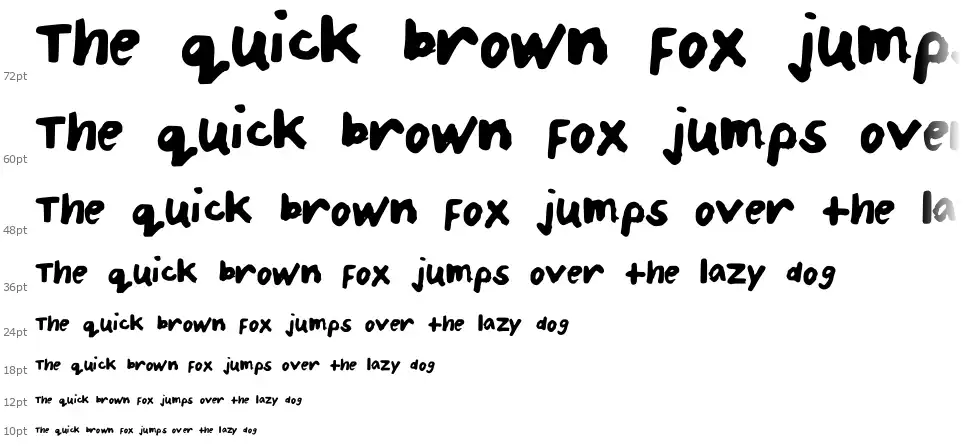 The quick brown fox jumps
72pt
The quick brown fox jumps over
60pt
The quick brown fox jumps over the la
48pt
The quick brown fox jumps over the lazy dog
36pt
The quick brown fox jumps over the lazy dog
24pt
The quick brown fox jumps over the lazy dog
18pt
The quick brown fox jumps over the lazy dog
12pt
The quick brown fox jumps over the lazy dog
10pt